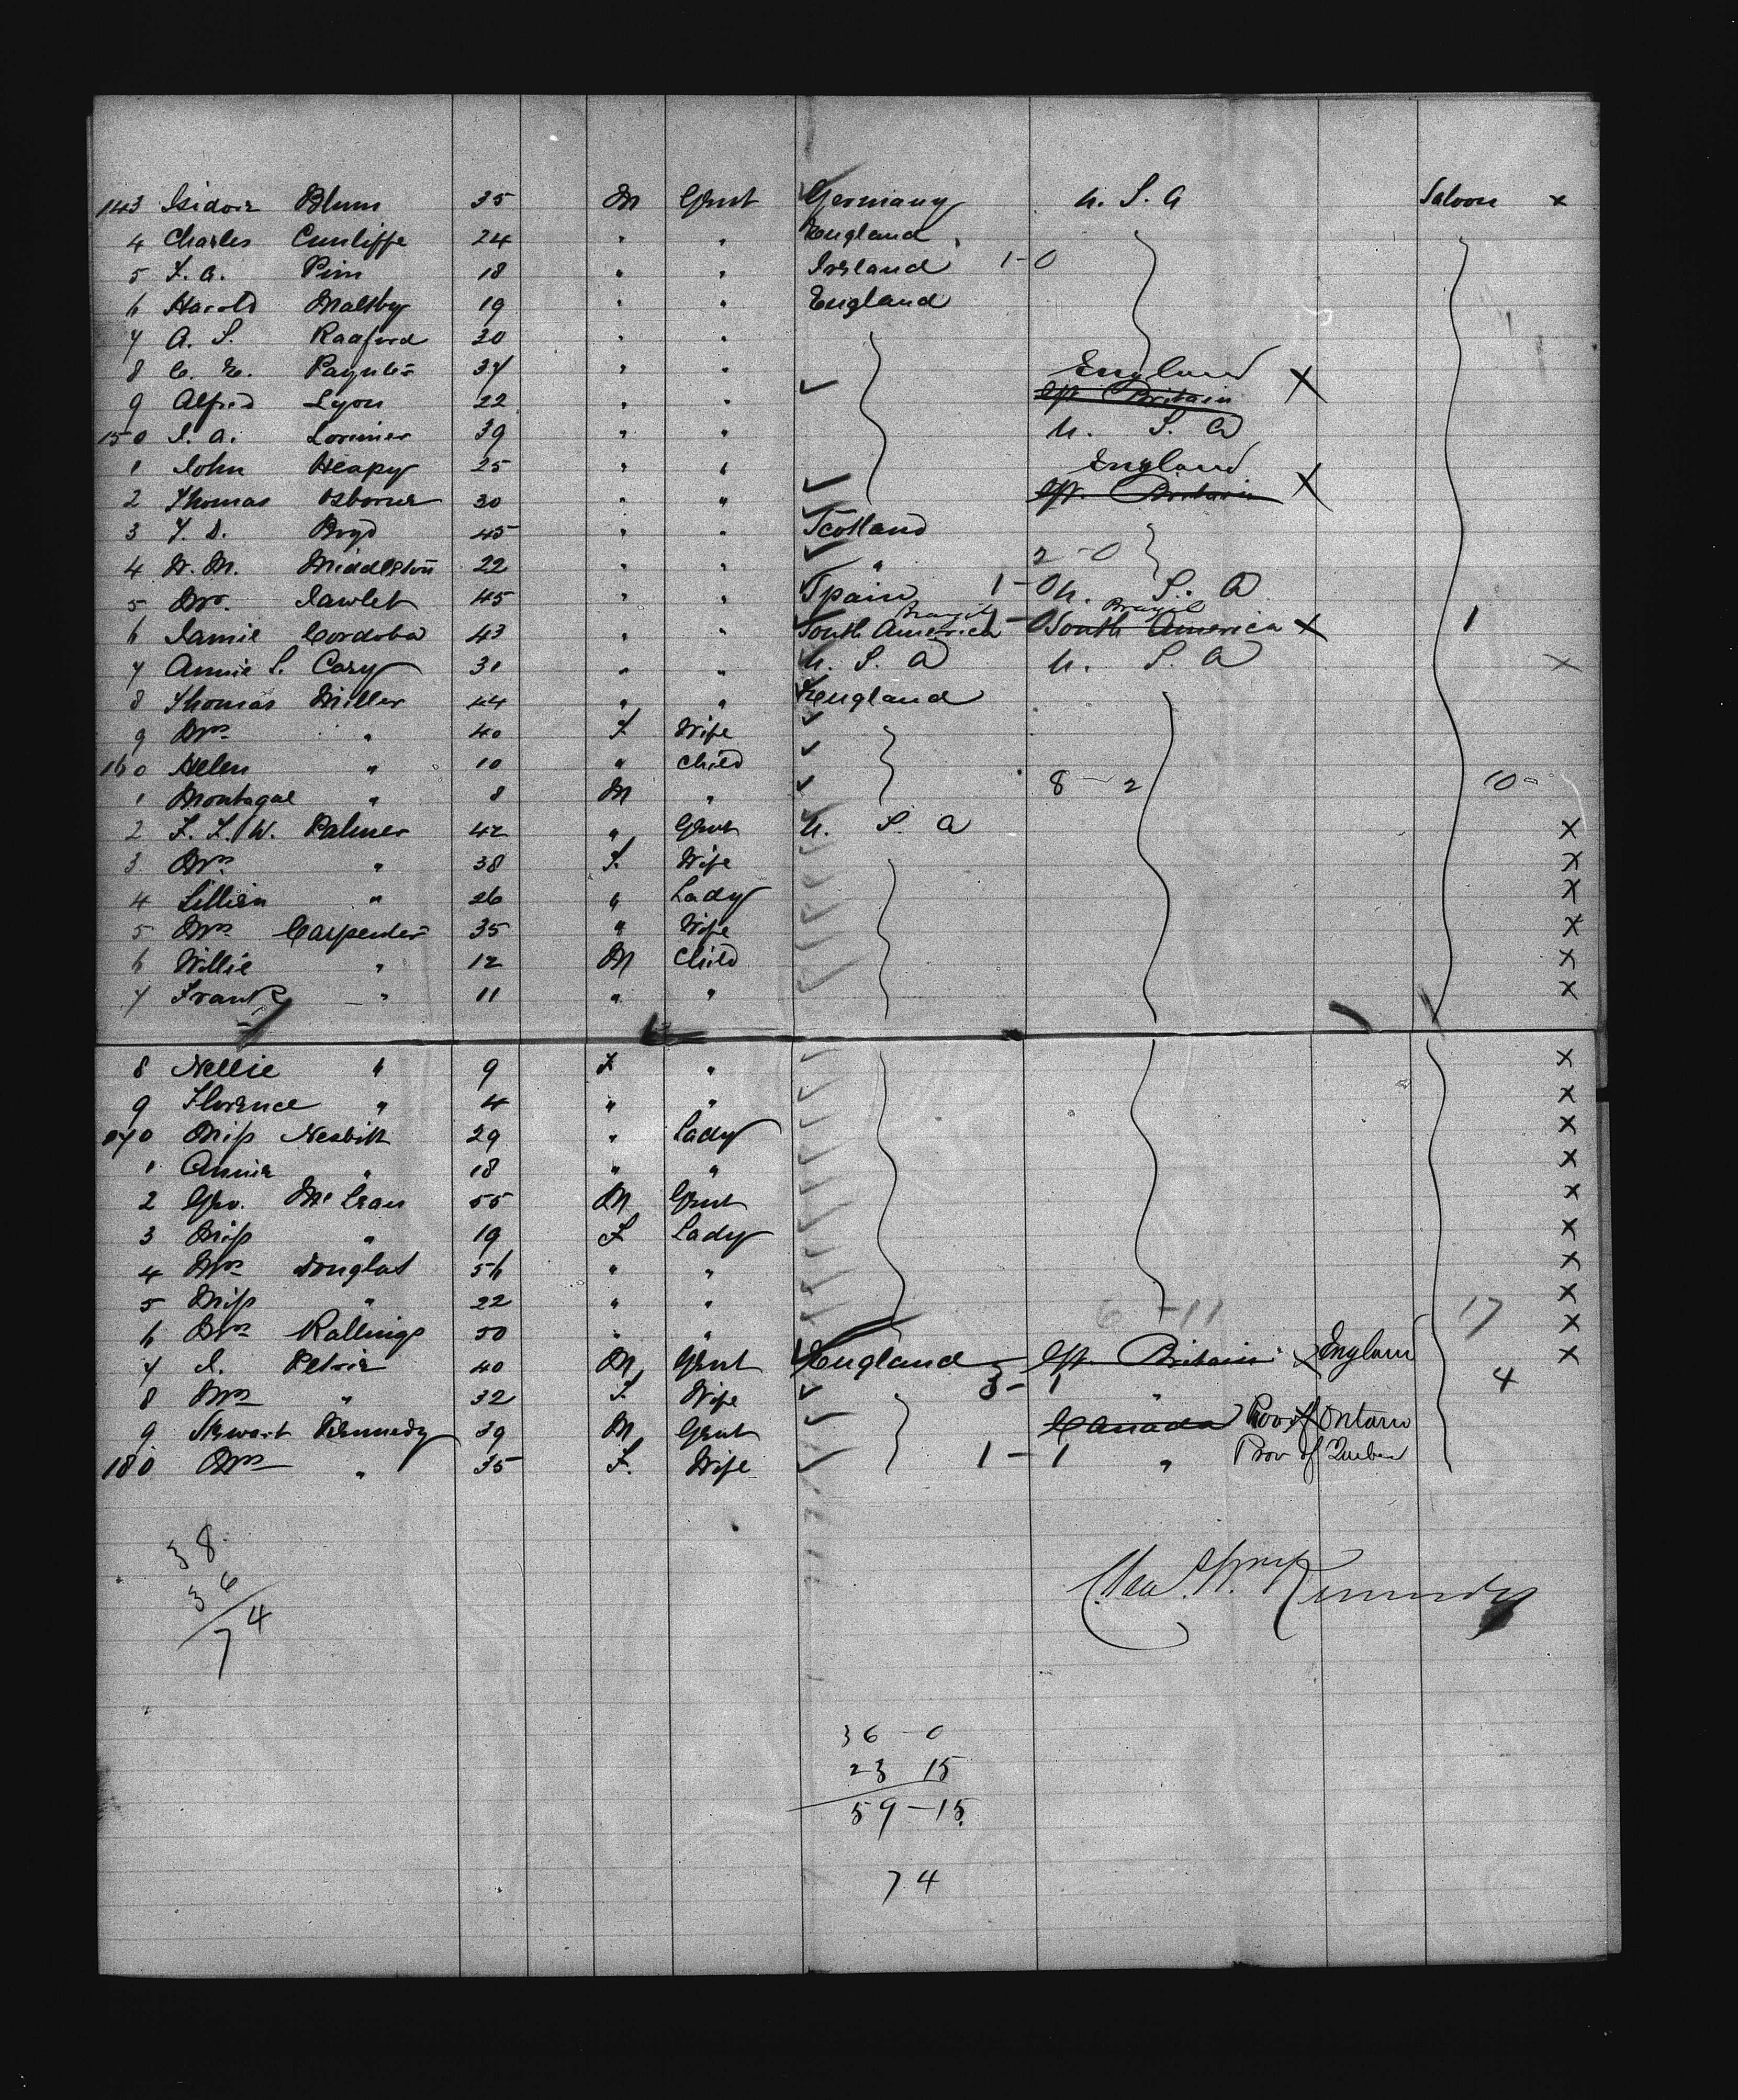 143 Isidor Blum 35 M Gent Germany U. S. A Saloon x
4 Charles Cunliffe 24 " " England
5 F. A. Pim 18 " " Ireland 1-0
6 Harold Maltby 19 " " England
7 A. S. Radford 30 " "
8 C. E. Paynter 34 " " England x
9 Alfred Lyon 22 " " Gt. Britain
150 J. A. Lorimer 39 " " U. S. A
1 John Heapy 25 " " England
2 Thomas Osborne 30 " " Gt. Britain x
3 J. D. Boyd 45 " " Scotland
4 W. M. Middleton 22 " " " 2-0
5 45 " " Spain 1-0 U. S. A
Brazil Brazil
6 Jamie Cordoba 43 " " South America 1-0 South America x 1
7 Annie L. Cary 31 " " U. S. A U. S. A x
8 Thomas Miller 44 " " England
9 Mrs " 40 F Wife
160 Helen " 10 " Child
1 Montague " 8 M " 8-2 10-
2 F. W. Palmer 42 " Gent U. S. A x
3 Mrs " 38 F. Wife x
4 Lillian " 26 " Lady x
5 Mrs Carpenter 35 " Wife x
6 Willie " 12 M Child x
7 Frank " 11 " " x
8 Nellie " 9 F " x
9 Florence " 4 " " x
170 Miss Nesbitt 29 " Lady x
1 Annie " 18 " " x
2 Geo. McLean 55 M Gent x
3 Miss " 19 F Lady x
4 Mrs Douglas 56 " " x
5 Miss " 22 " " x
6 Mrs Rollings 50 " " 6-11 17 x
7 J. Petrie 40 M Gent England Gt. Britain x England x
8 Mrs " 32 F. Wife 3-1 " 4
9 Stewart Kennedy 39 M Gent Canada Prov of Ontario
180 Mrs " 35 F. Wife 1-1 " Prov of Quebec
38
36
74
Kennedy
36 0
23 15
59-15
74